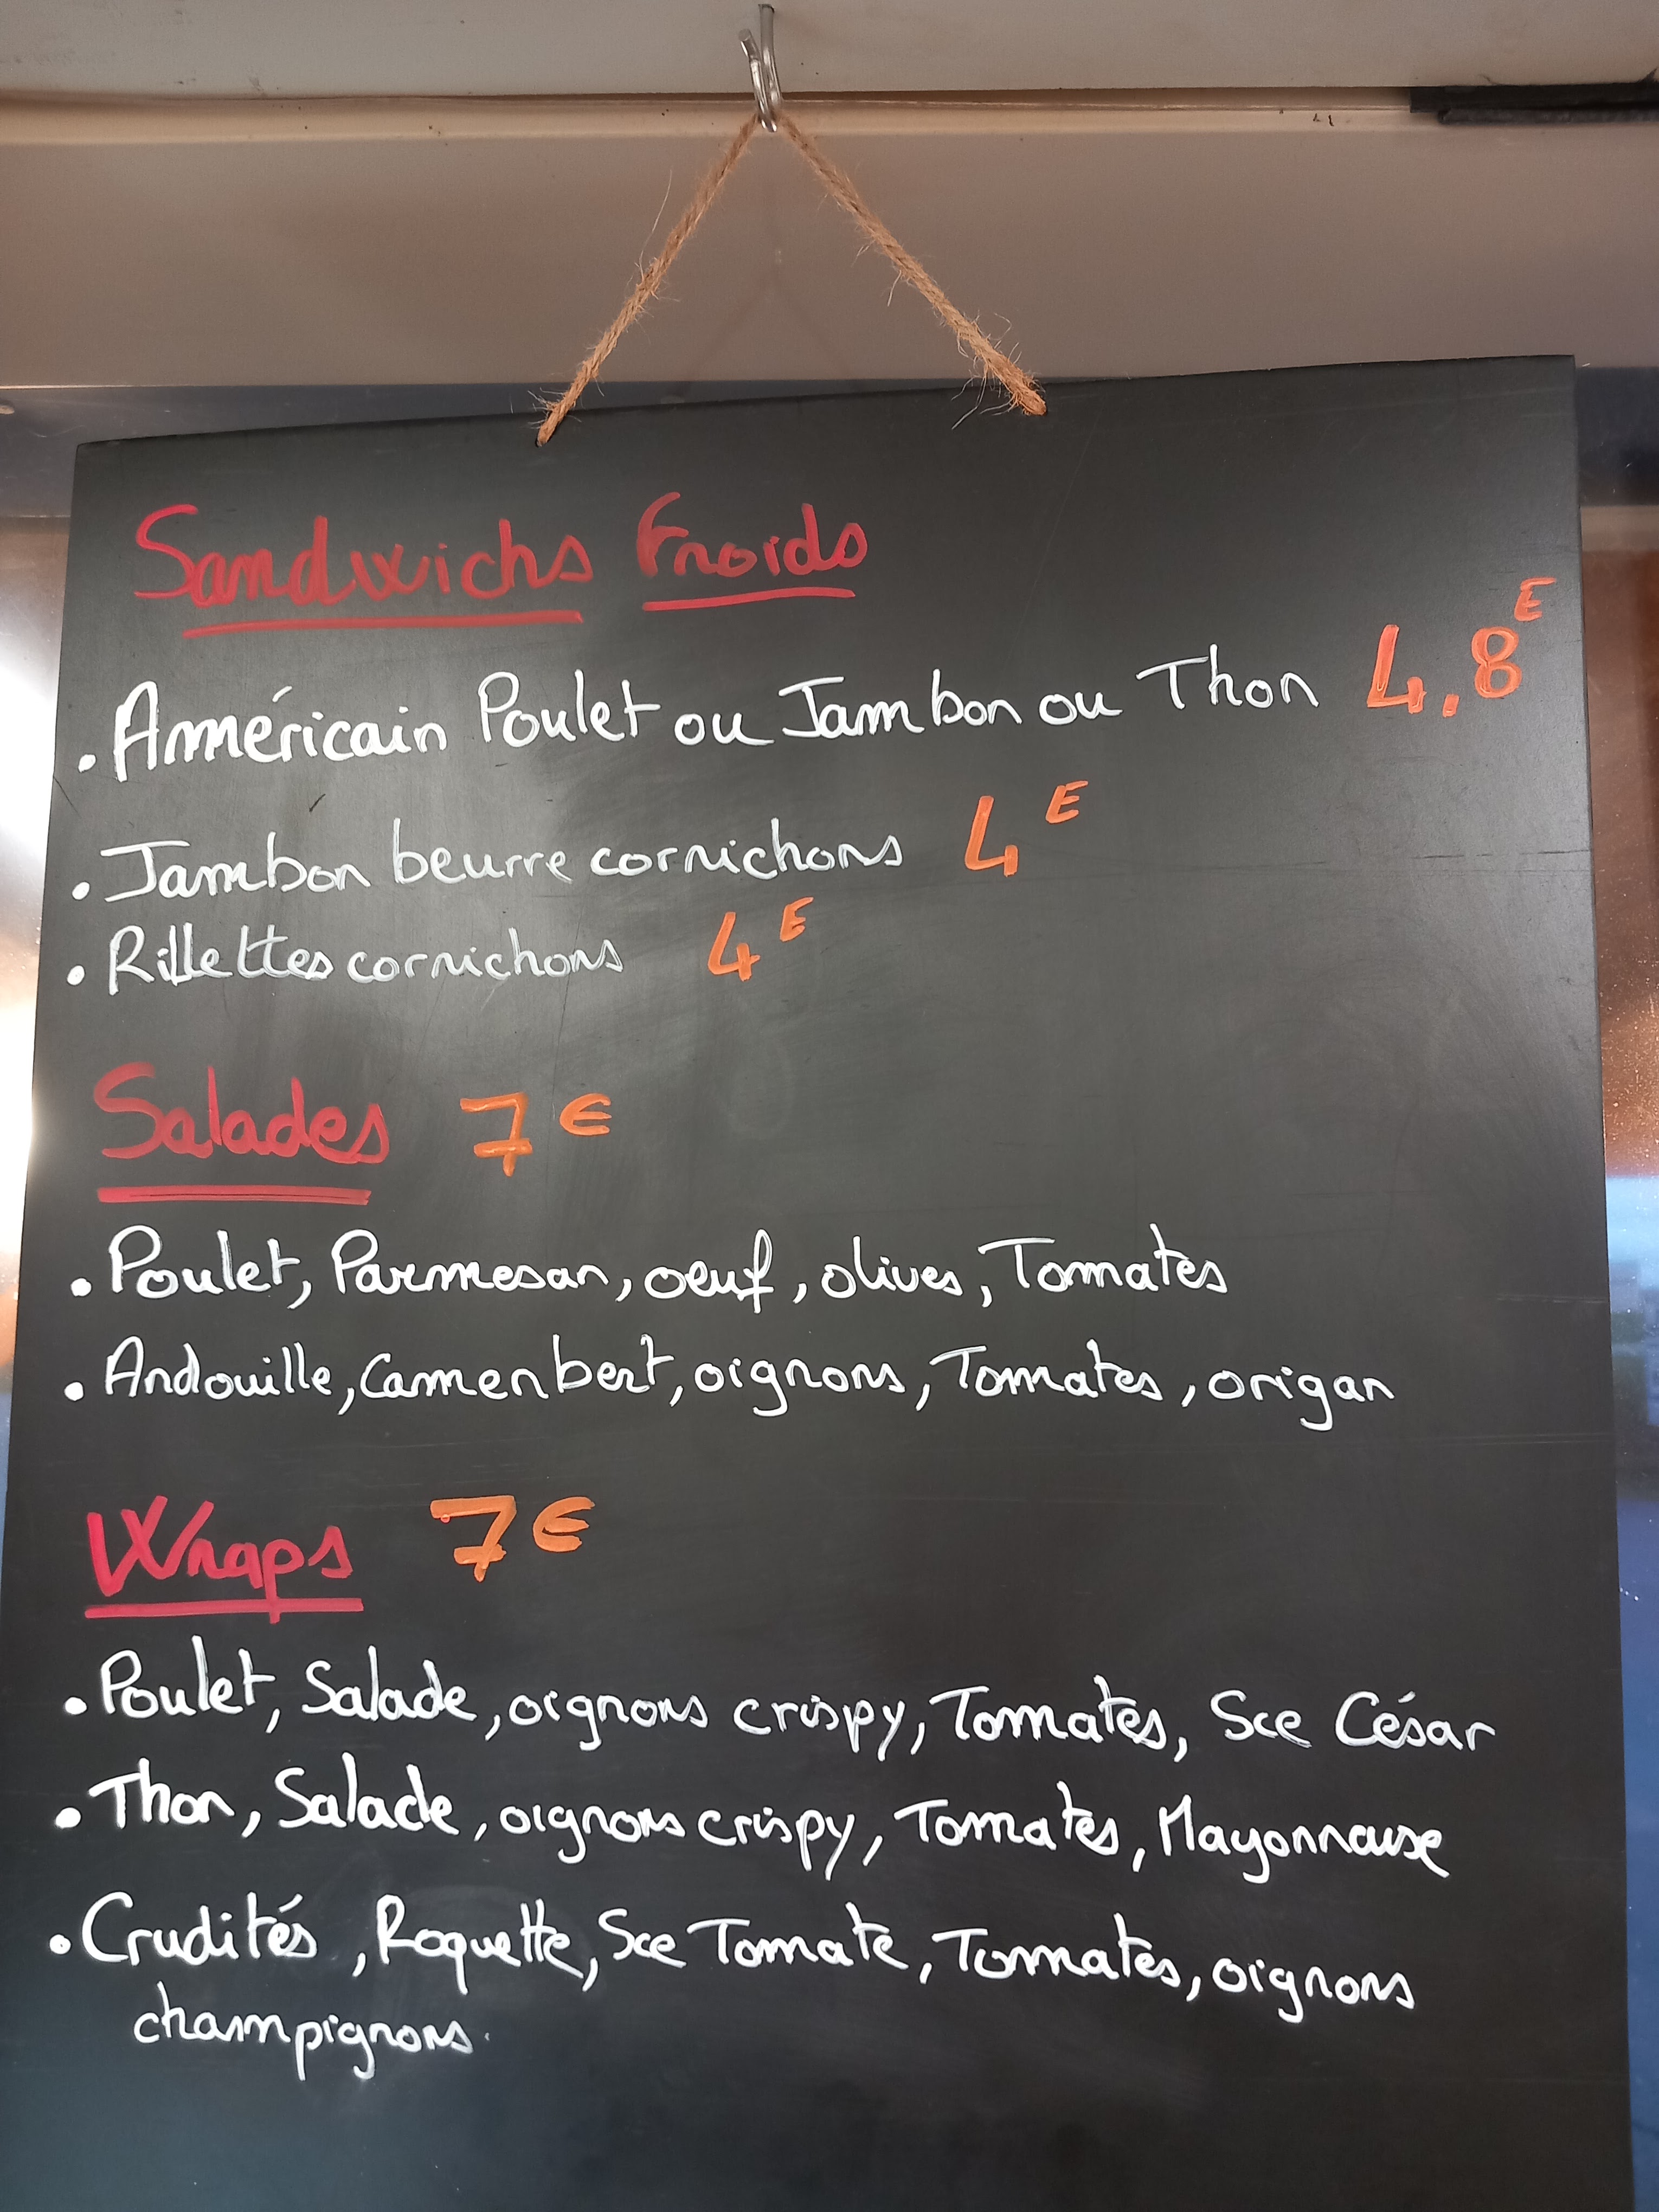 Sandwichs Froids
. Américain Poulet ou Jambon ou Thon 4,8 E
. Jambon beurre cornichons 4 E
. Rillettes cornichons 4 E
Salades 7 €
. Poulet, Parmesan, oeuf, olives, Tomates
. Andouille, Camenbert, oignons, Tomates, origan
Wraps 7 €
. Poulet, Salade, oignons crispy, Tomates, Sce César
. Thon, Salade, oignons crispy, Tomates, Mayonnaise
. Crudités, Roquette, Sce Tomate, Tomates, oignons
champignons.